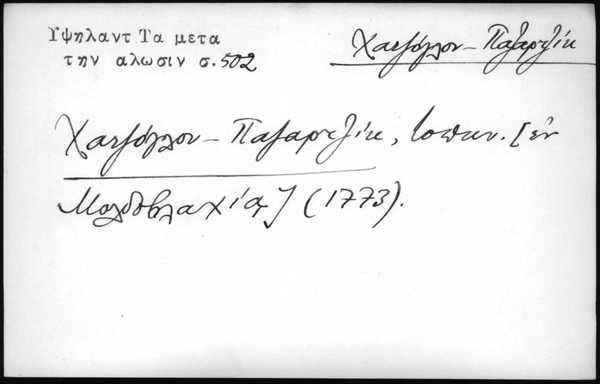 Υψηλαντ Τα μετα
την αλωσιν σ. 502
Χατζόγλου – Παζαρτζίκ
Χατζόγλου – Παζαρτζίκ, τοπων. [ἐν
Μολδοβλαχίᾳ] (1773).